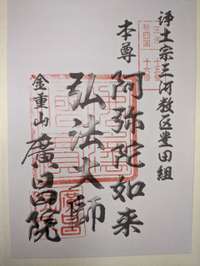 浄土宗三河教区豊田組
本尊 阿弥陀如来
弘法大師
金重山 廣昌院